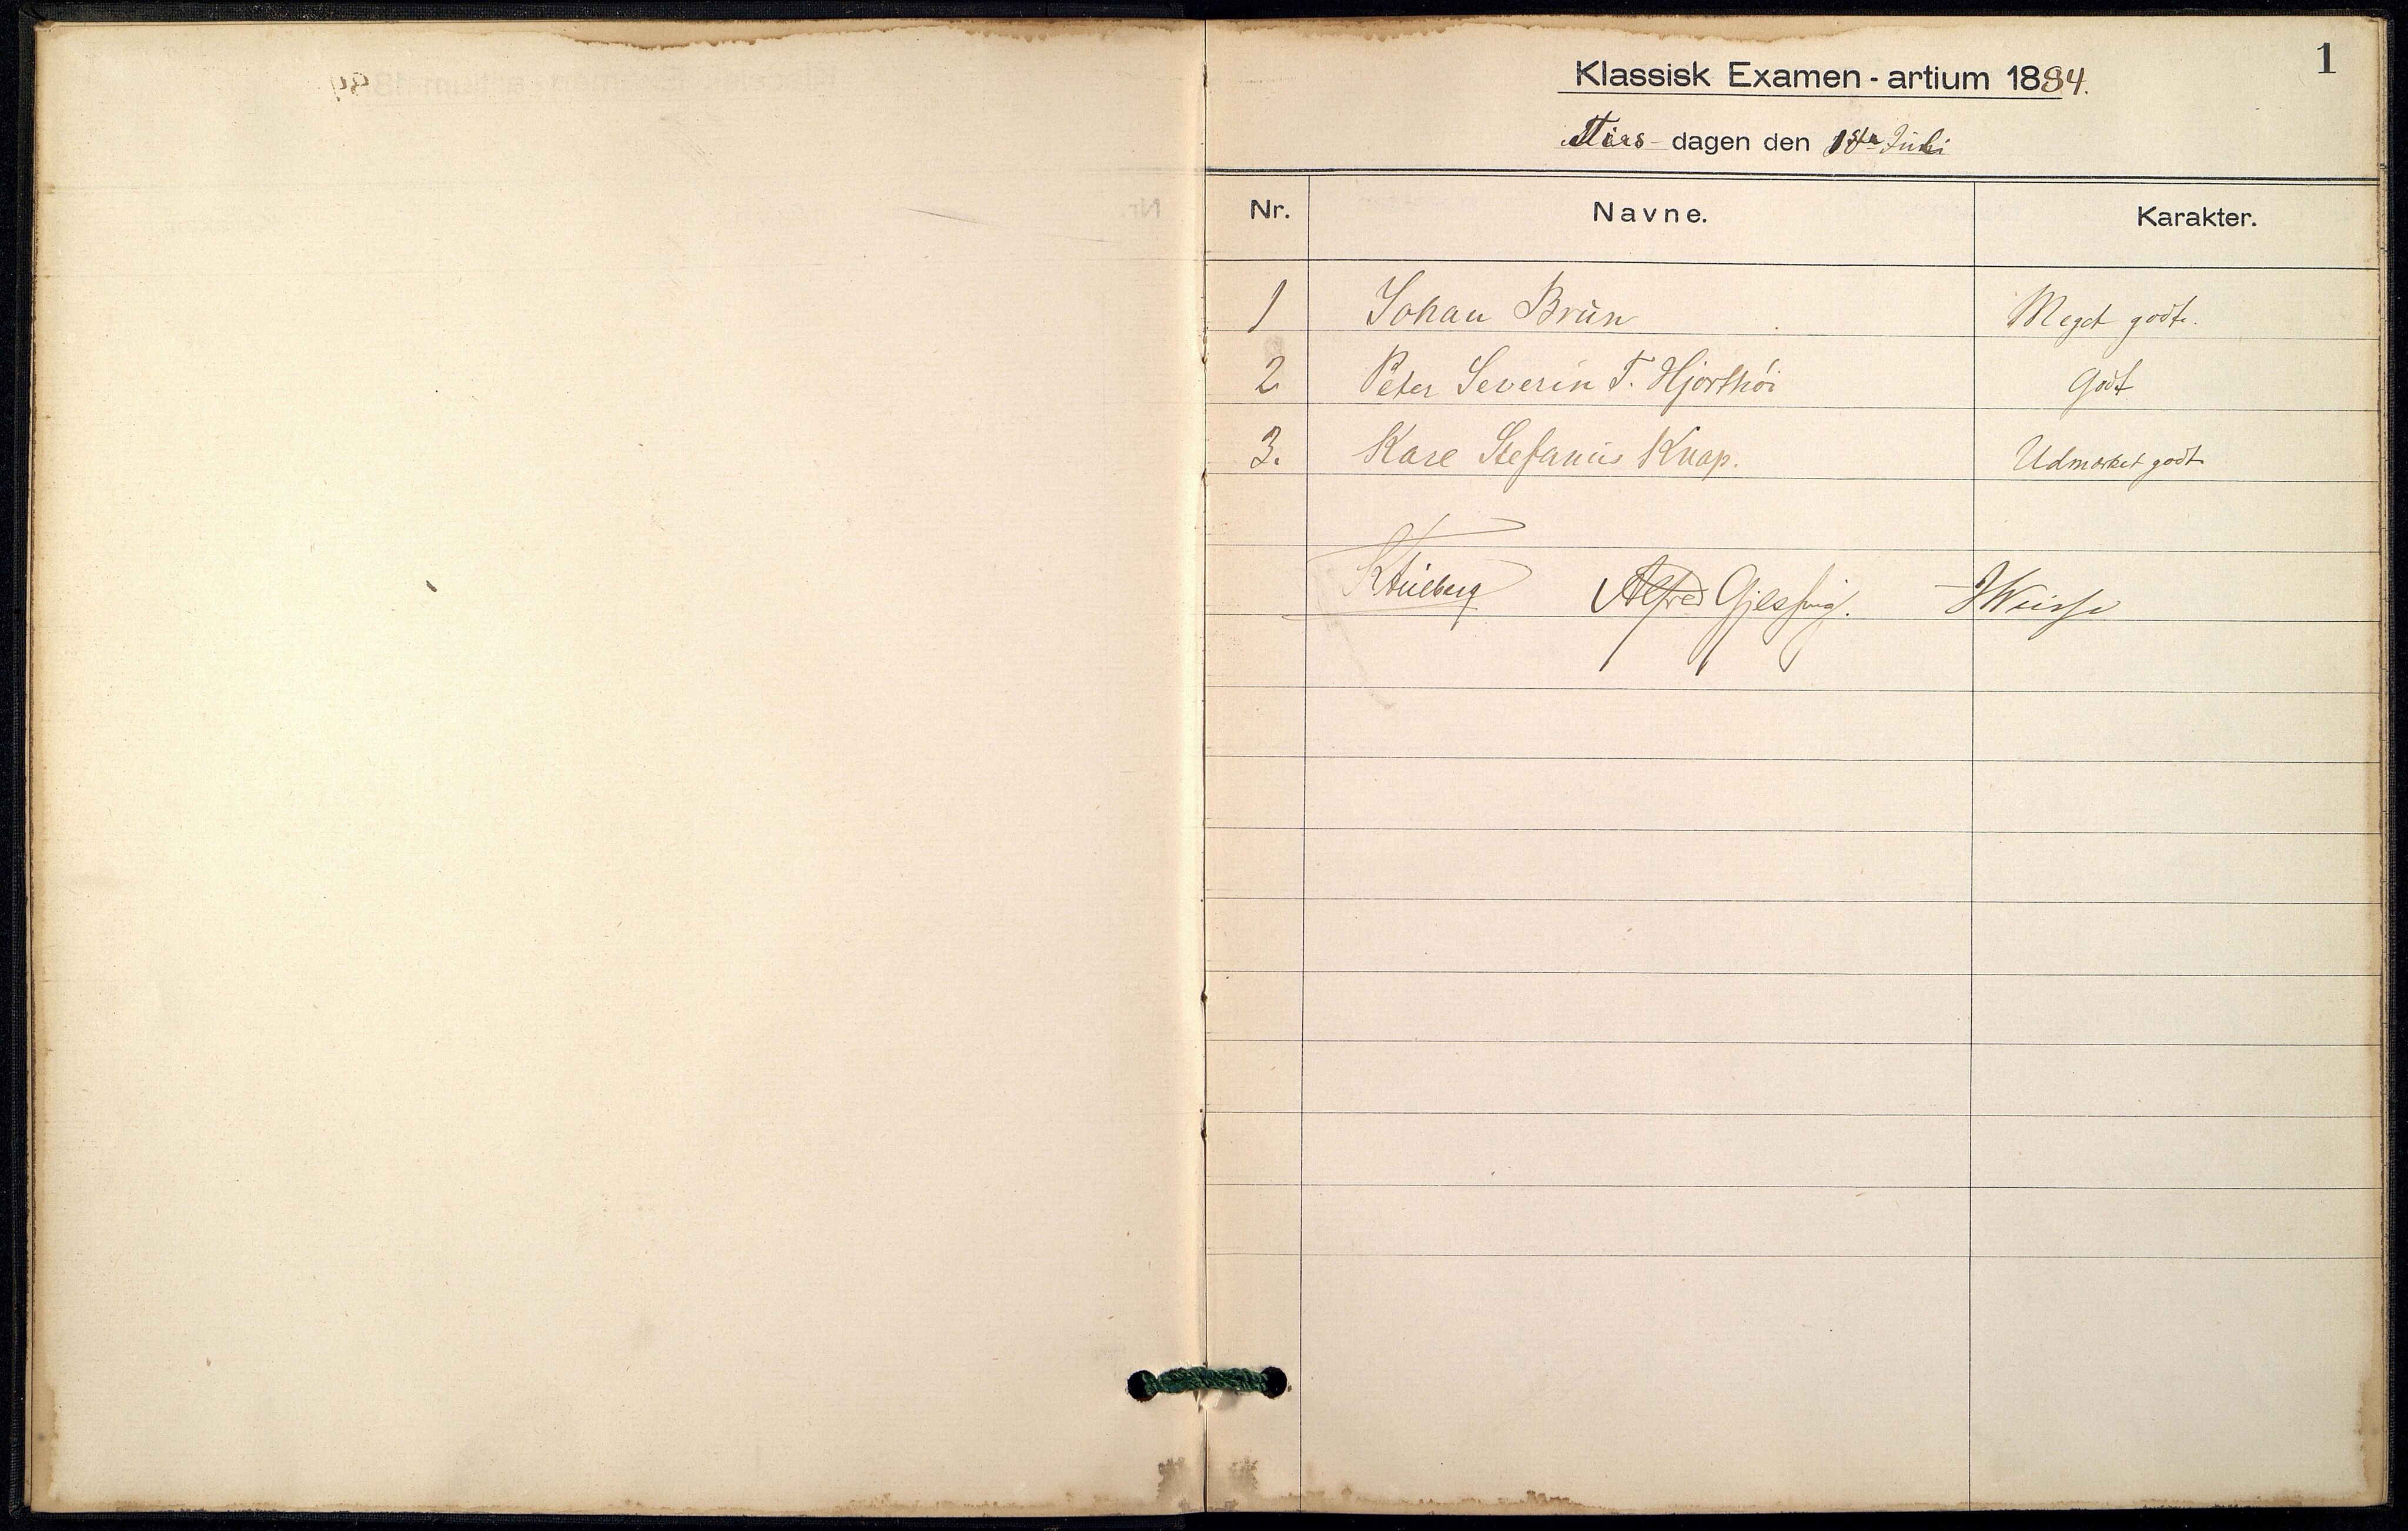 1
Klassisk Examen - artium 1894.
Tirs - dagen den Juli
Nr. Navne. Karakter.
1 Johan Brun Meget godt.
2 Peter Severin T. Hjorthöi Godt
3. Kare Stefanus Knap. Udmærket godt
Alfred Gjessing.